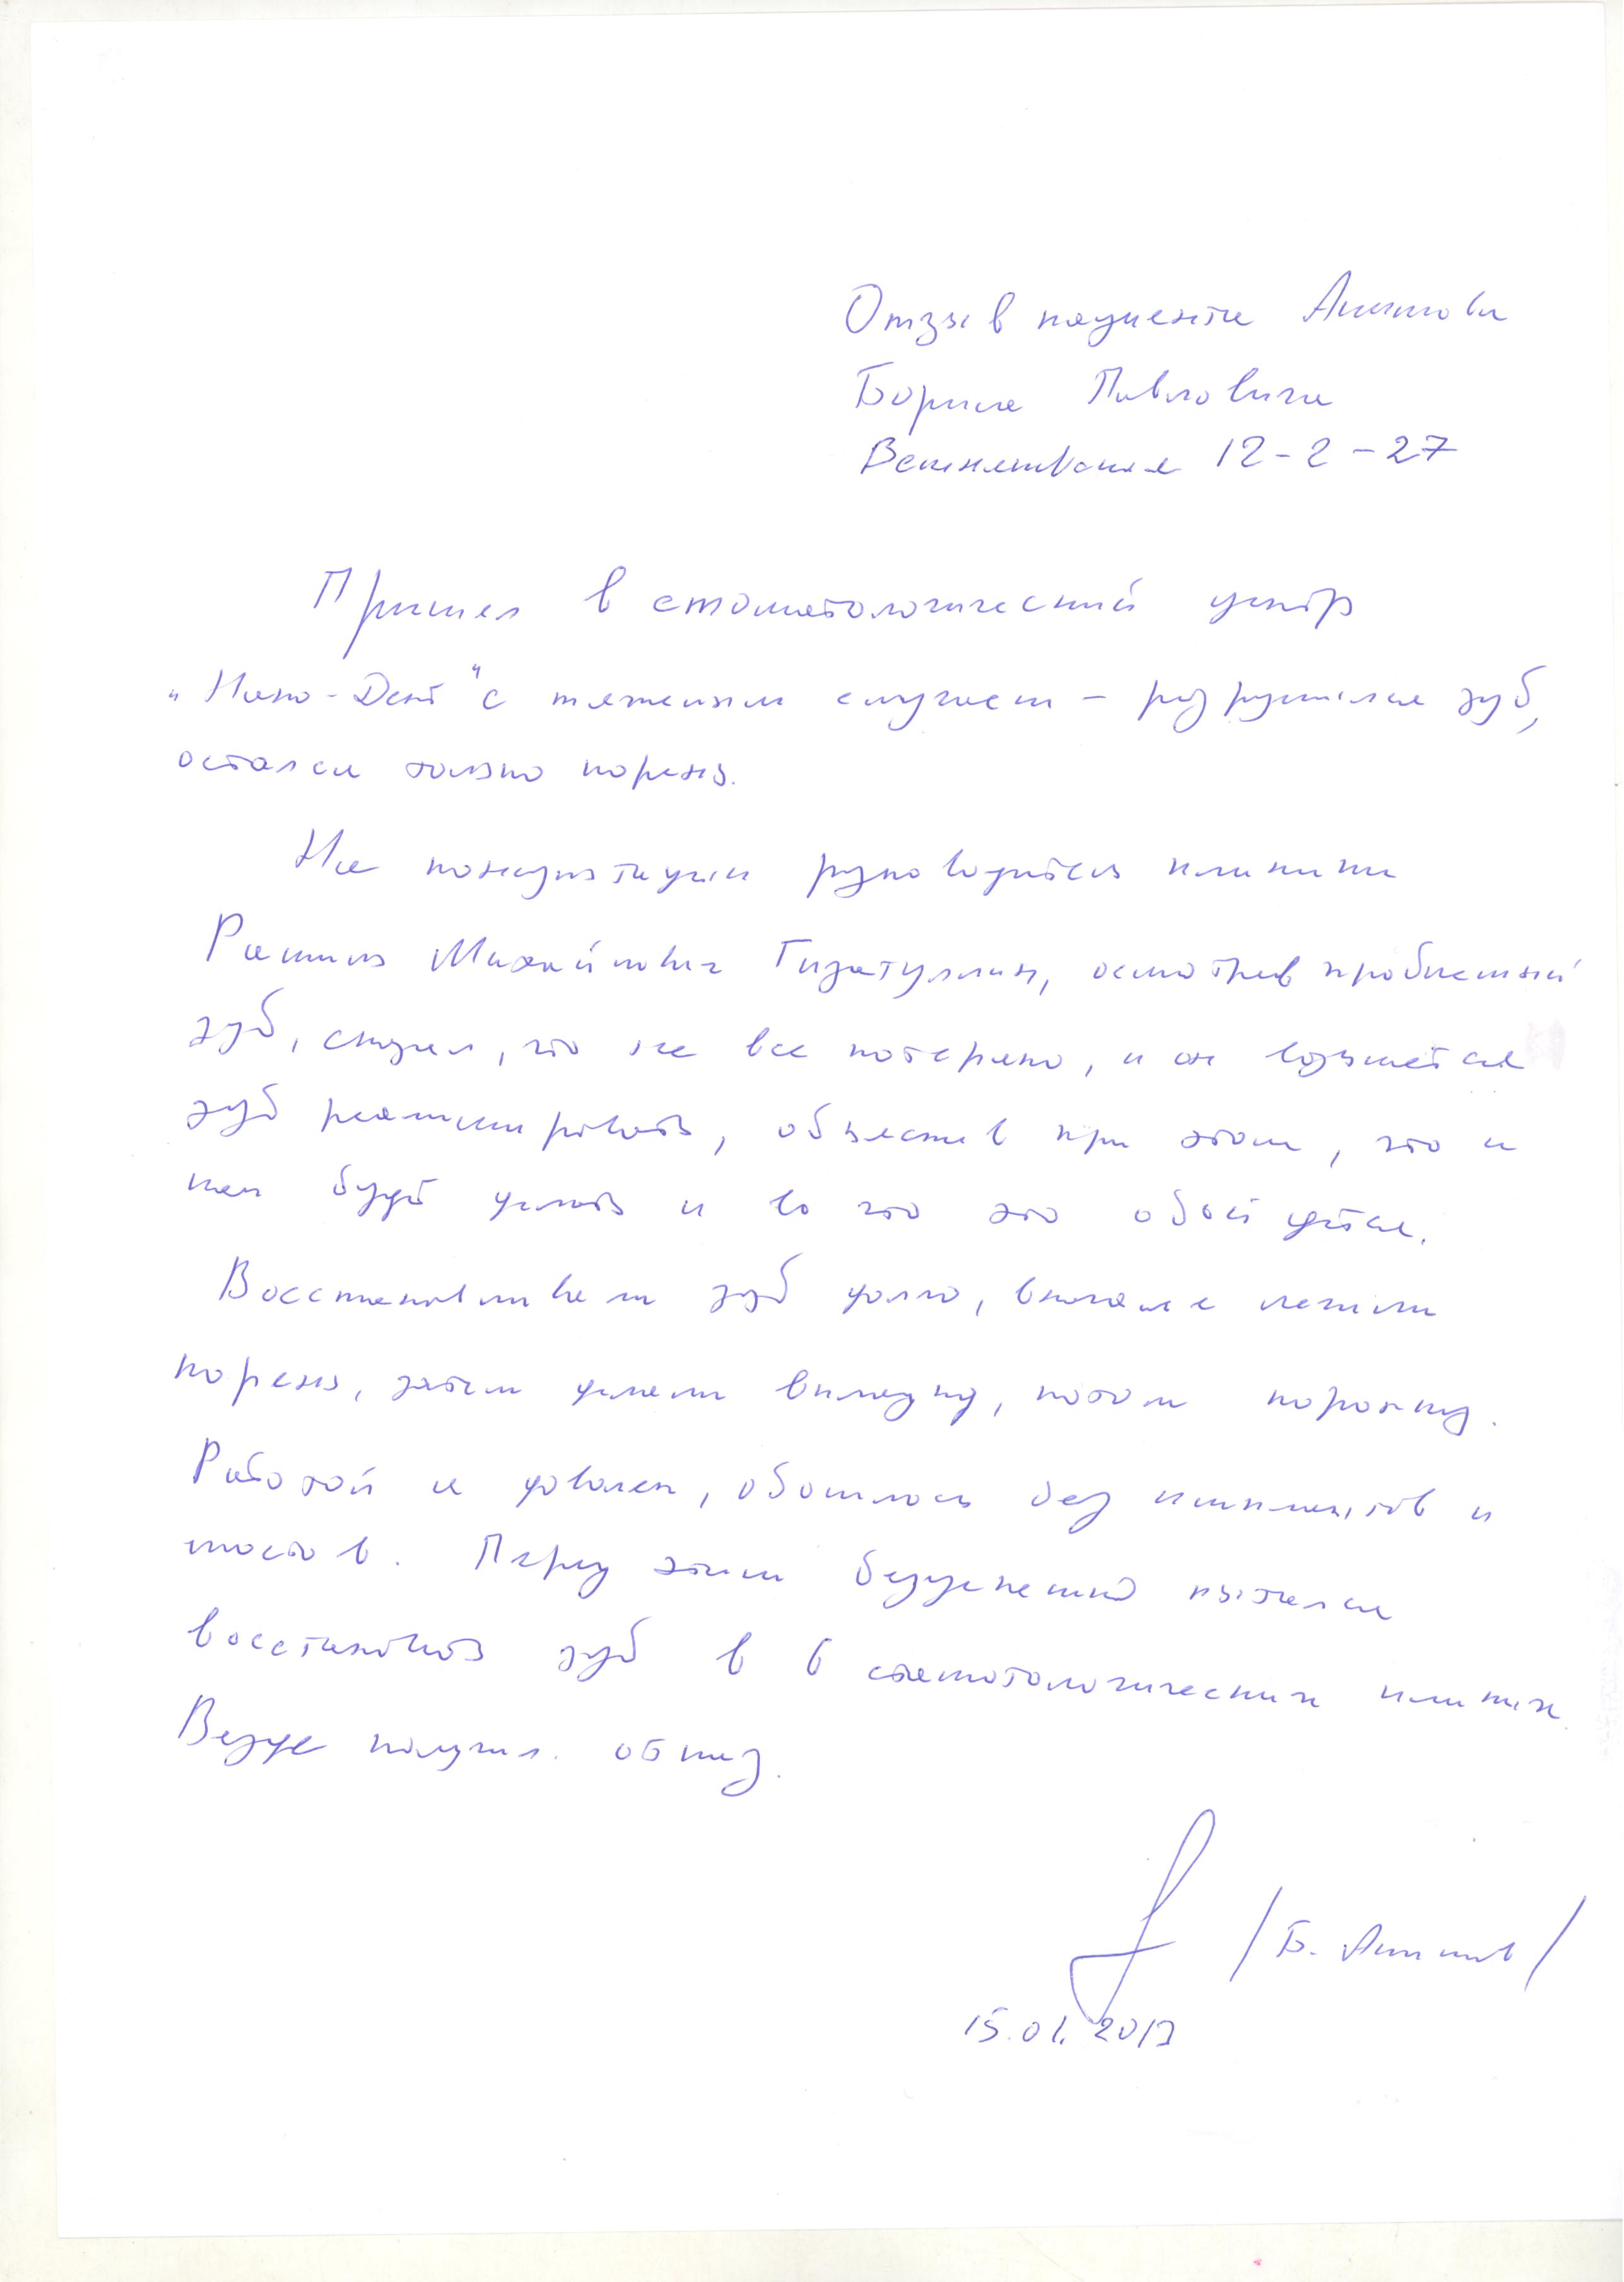 Отзыв пациента
Бориса Павловича
12-2-27
Пришел в стоматологический центр
„Нано-Дент" с тяжелым случаем – разрушился зуб,
остался только корень.
На консультации руководитель клиники
Рамиль Михайлович Гизатуллин, осмотрев проблемный
зуб, сказал, что не все потеряно, и он возьмется
зуб реанимировать, объяснив при этом, что и
как будет делать и во что это обойдется.
Восстанавливали зуб долго, вначале лечили
корень, затем делали вкладку, потом коронку.
Работой я доволен, обошлось без имплантов и
мостов. Перед этим безуспешно пытался
восстановить зуб в 6 стоматологических клиниках
Везде получил отказ.
/Б. /
15.01.2013